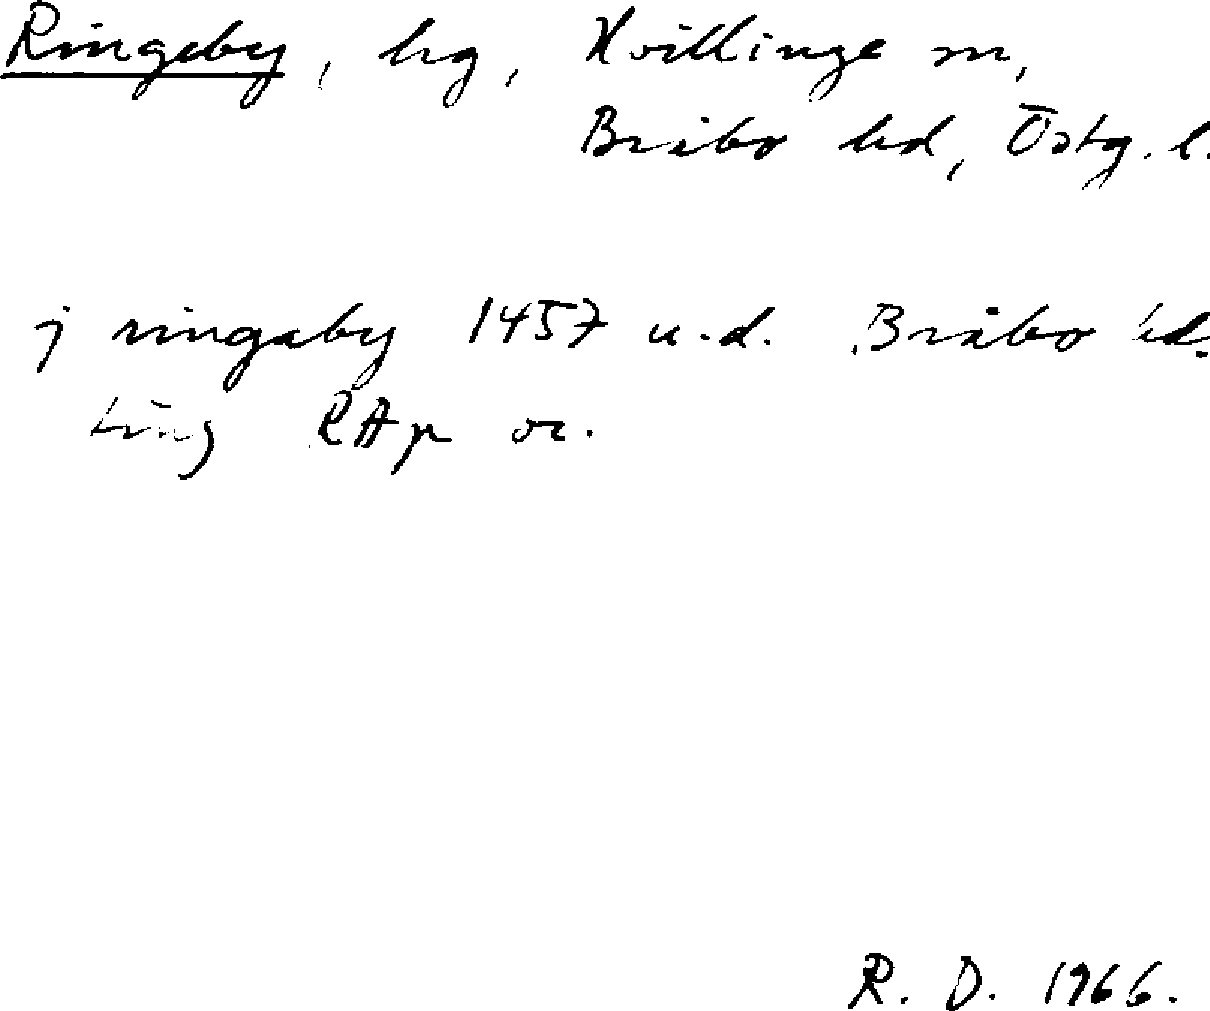 Ringeby, hg, Kvillinge sn,
Bråbo hd, Östg. l.
j ringaby 1457 u.d. Bråbo hd.
ting RAp or.
R. D. 1966.